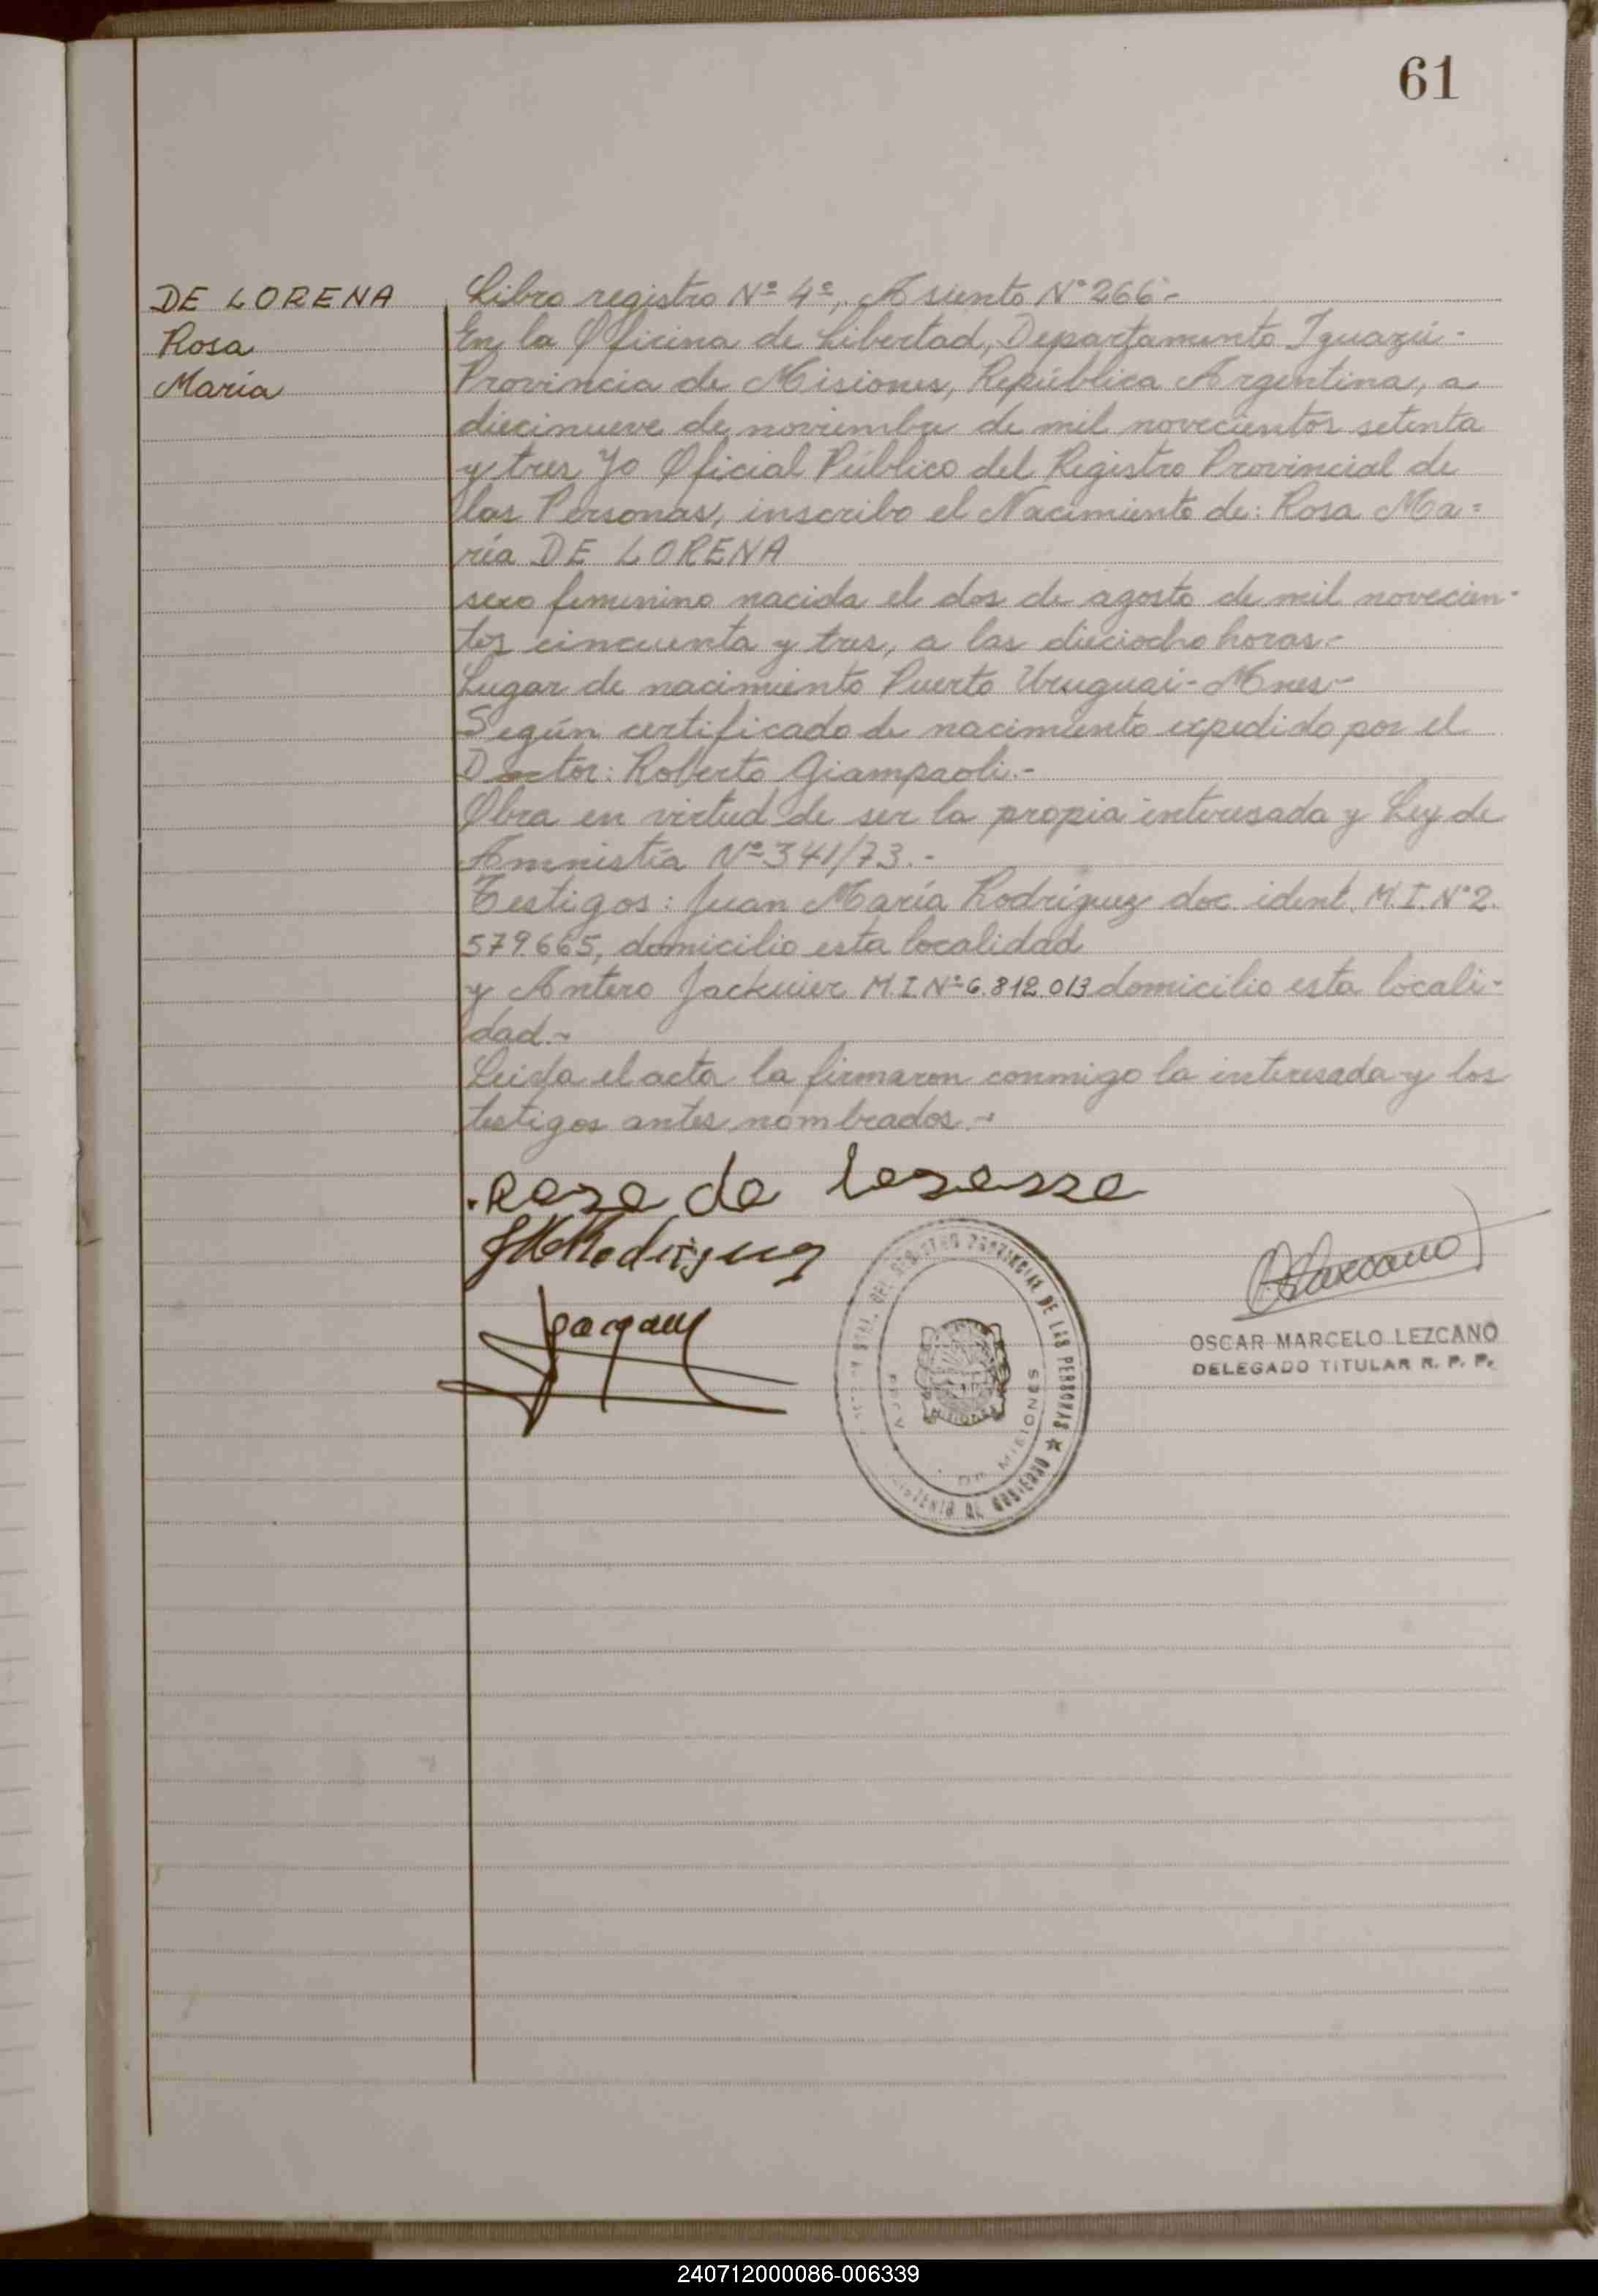 61
DE LORENA
Rosa
María
Libro registro Nº 4º, Asunto Nº 266-
En la Oficina de Libertad, Departamento Iguazú-
Provincia de Misiones, República Argentina, a
diecinueve de noviembre de mil novecientos setenta
y tres Yo Oficial Público del Registro Provincial de
las Personas, inscribo el Nacimiento de: Rosa Ma=
ría DE LORENA
sexo femenino nacida el dos de agosto de mil novecien-
tos cincuenta y tres, a las dieciocho horas.-
Lugar de nacimiento Puerto Uruguai-Mnes-
Según certificado de nacimiento expedido por el
Doctor: Roberto Giampaoli.-
Obra en virtud de ser la propia interesada y Ley de
Amnistía Nº 341/73.-
Testigos: Juan María Rodríguez doc. ident. M.I. Nº 2.
579.665, domicilio esta localidad
y Antero Jackuier M.I. Nº 6.812.013 domicilio esta locali-
dad.-
Leída el acta la firmaron conmigo la interesada y los
testigos antes nombrados.-
Rosa de
JMRodriguez
OSCAR MARCELO LEZCANO
DELEGADO TITULAR R. P. P.
DEL REGISTRO PROVINCIAL DE LAS PERSONAS ★
DE GOBIERNO
MISIONES
DE MISIONES
240712000086-006339